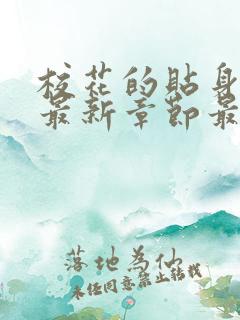 校花的贴身
最新章节最
落地为仙
未经同意禁止转载